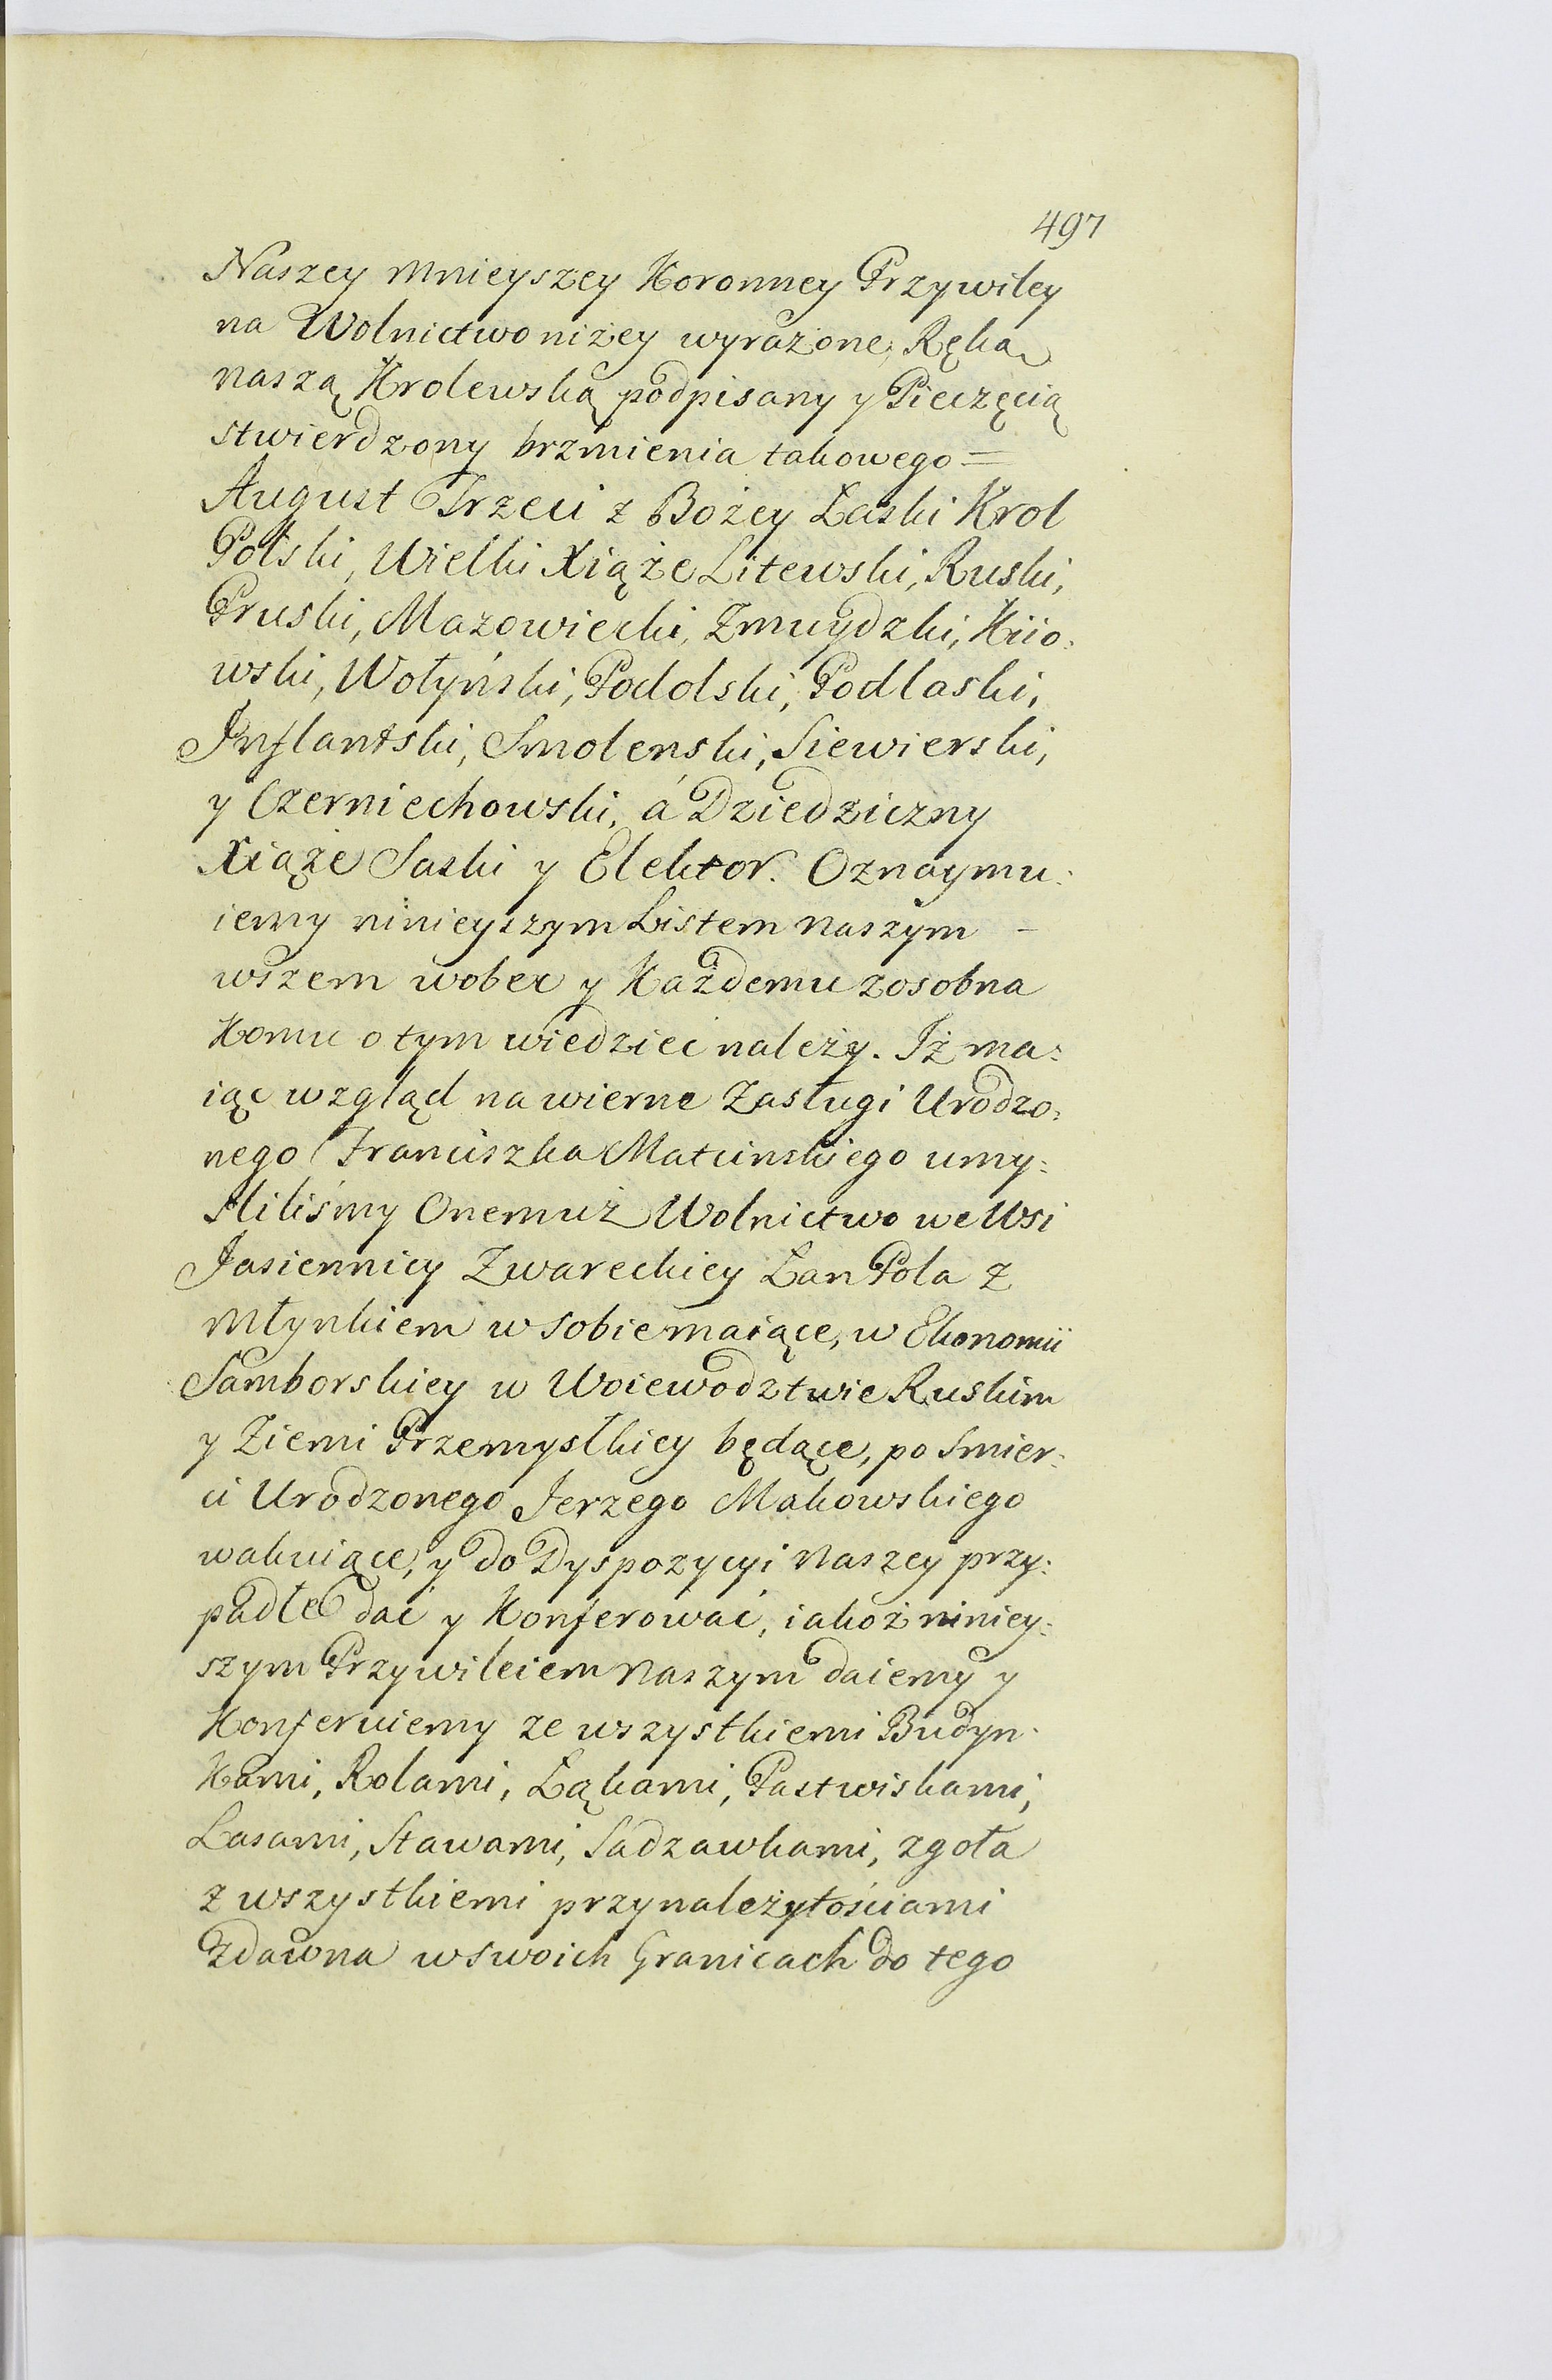 497
Naszey Mnieyszey Koronney Przywiley
na Wolnictwo niżey wyrażone, Ręką
naszą Krolewską podpisany y Pieczęcią
stwierdzony brzmienia takowego =
August Trzeci z Bożey Łaski Krol
Polski, Wielki Xiąże Litewski, Ruski,
Pruski, Mazowiecki, Zmuydzki, Kiio:
wski, Wołyński, Podolski, Podlaski,
Inflantski, Smolenski, Siewierski,
y Czerniechowski, á Dziedziczny
Xiąże Saski y Elektor. Oznaymu:
iemy ninieyszym Listem Naszym –
wszem wobec y Każdemu zosobna
Komu o tym wiedziec należy. Iż ma:
iąc wzgląd na wierne Zasługi Urodzo:
nego Franciszka Matcinskiego umy:
sliliśmy Onemuż Wolnictwo we Wsi
Jasiennicy Zwareckiey Łan Pola z
Młynkiem w sobie maiące, w Ekonomii
Samborskiey w Woiewodztwie Ruskim
y Ziemi Przemyslkiey będące, po Smier:
ci Urodzonego Jerzego Makowskiego
wakuiące, y do Dyspozycyi Naszey przy:
padłe dać y Konferować, iakoż niniey:
szym Przywileiem Naszym daiemy y
Konferuiemy ze wszystkiemi Budyn:
Kami, Rolami, Łąkami, Pastwiskami,
Lasami, Stawami, Sadzawkami, zgoła
z wszystkiemi przynależytościami
Zdawna w swoich Granicach do tego